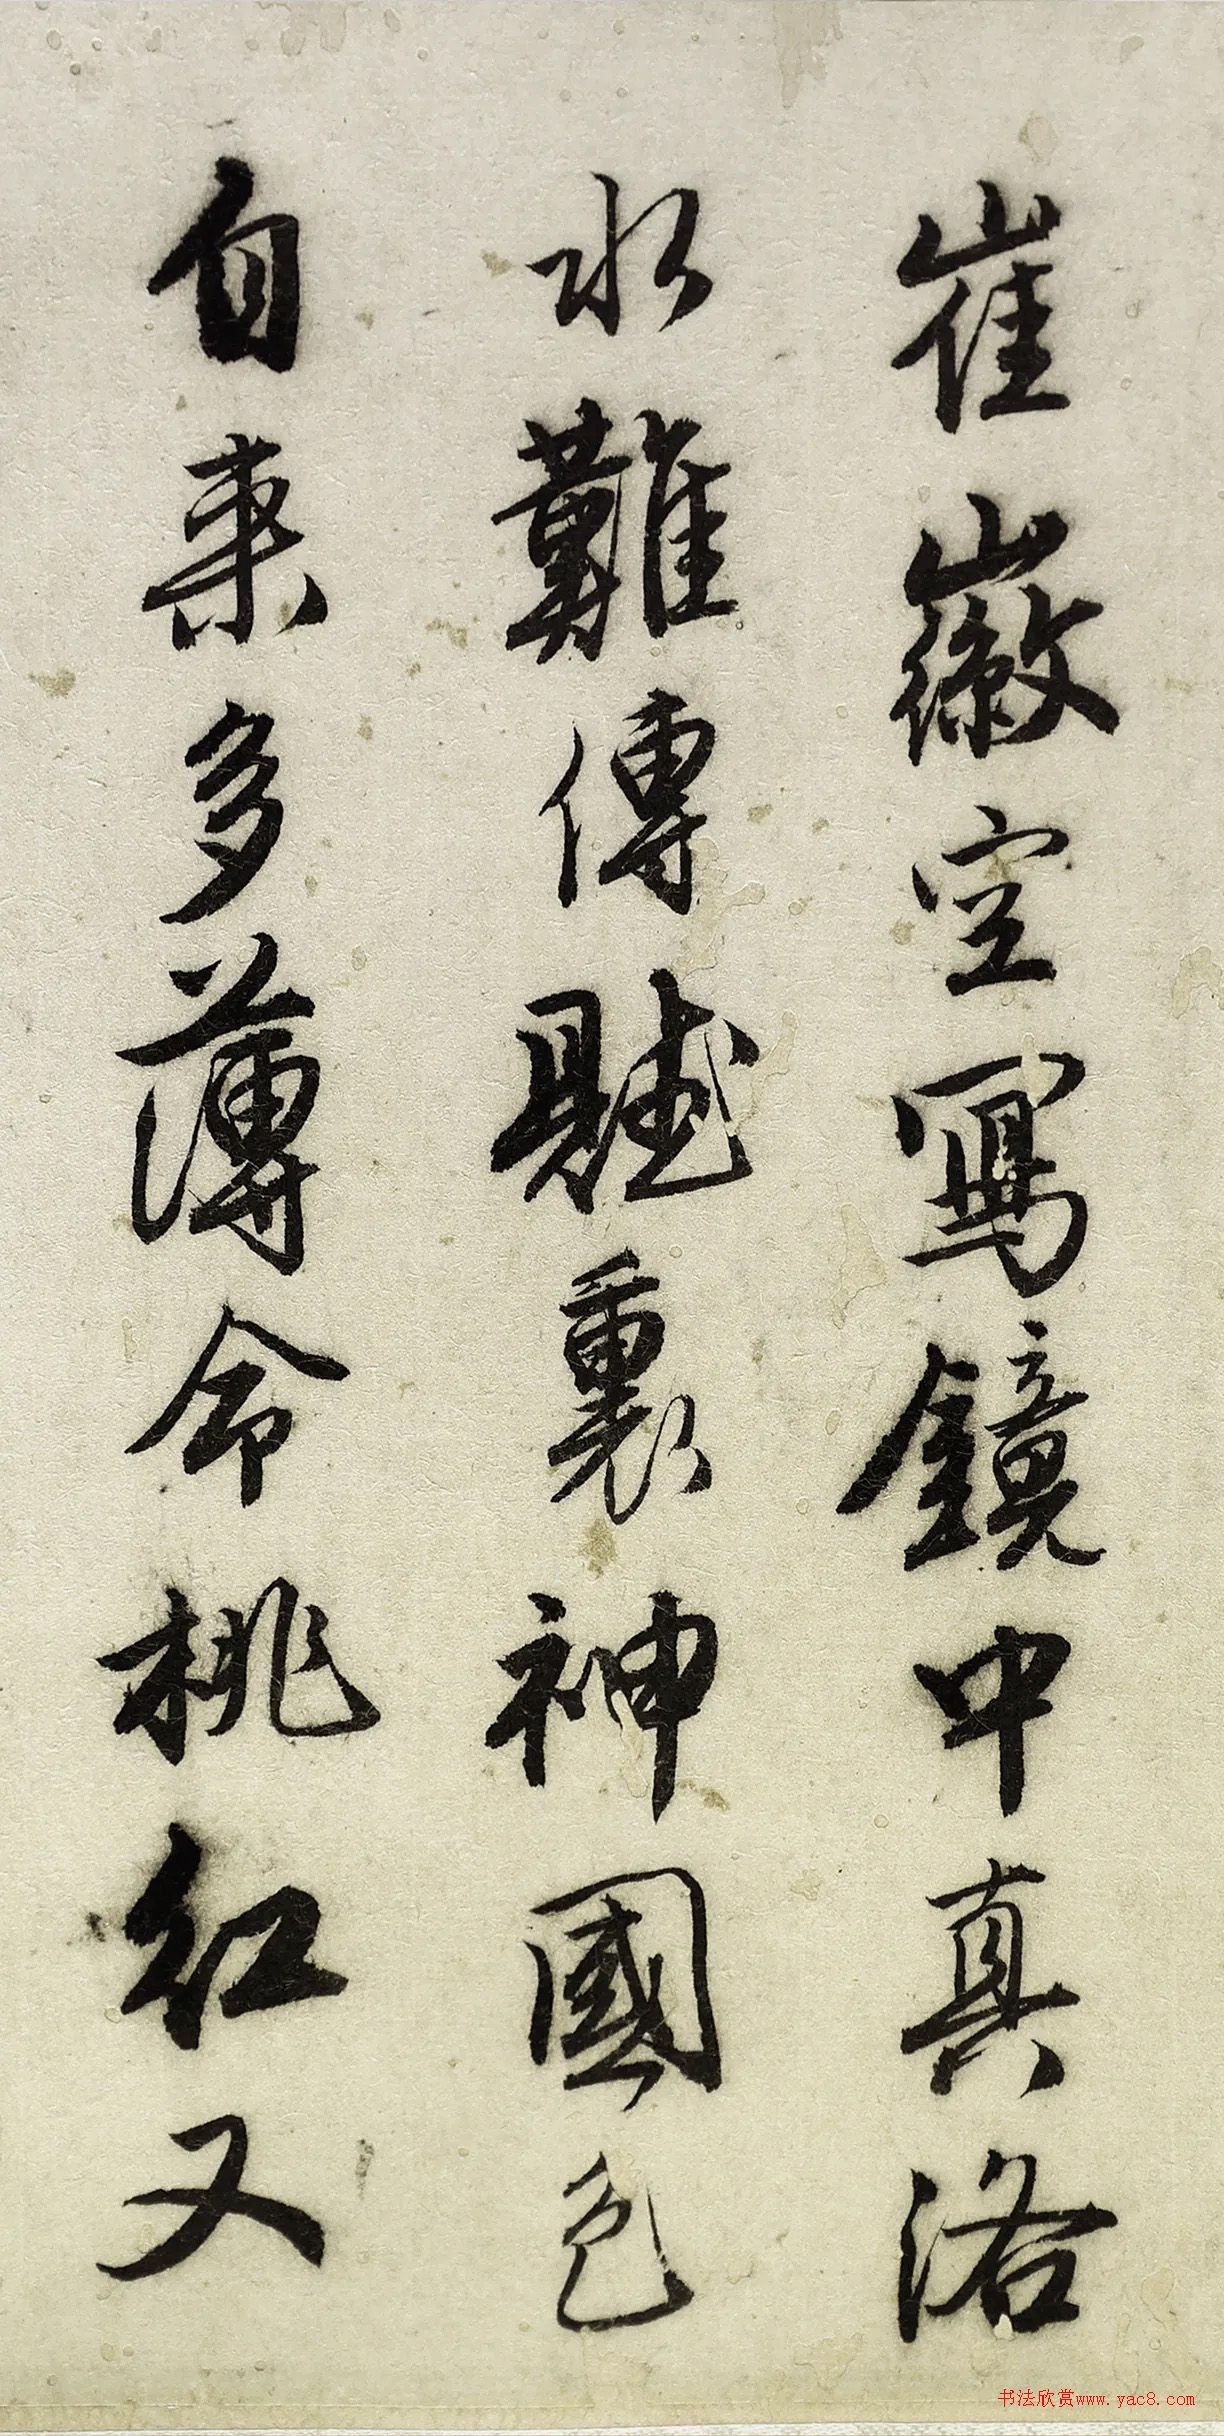 崔徽空寫鏡中真洛
水難傳賦裏神國色
自來多薄命桃紅又
书法欣赏www.yac8.com